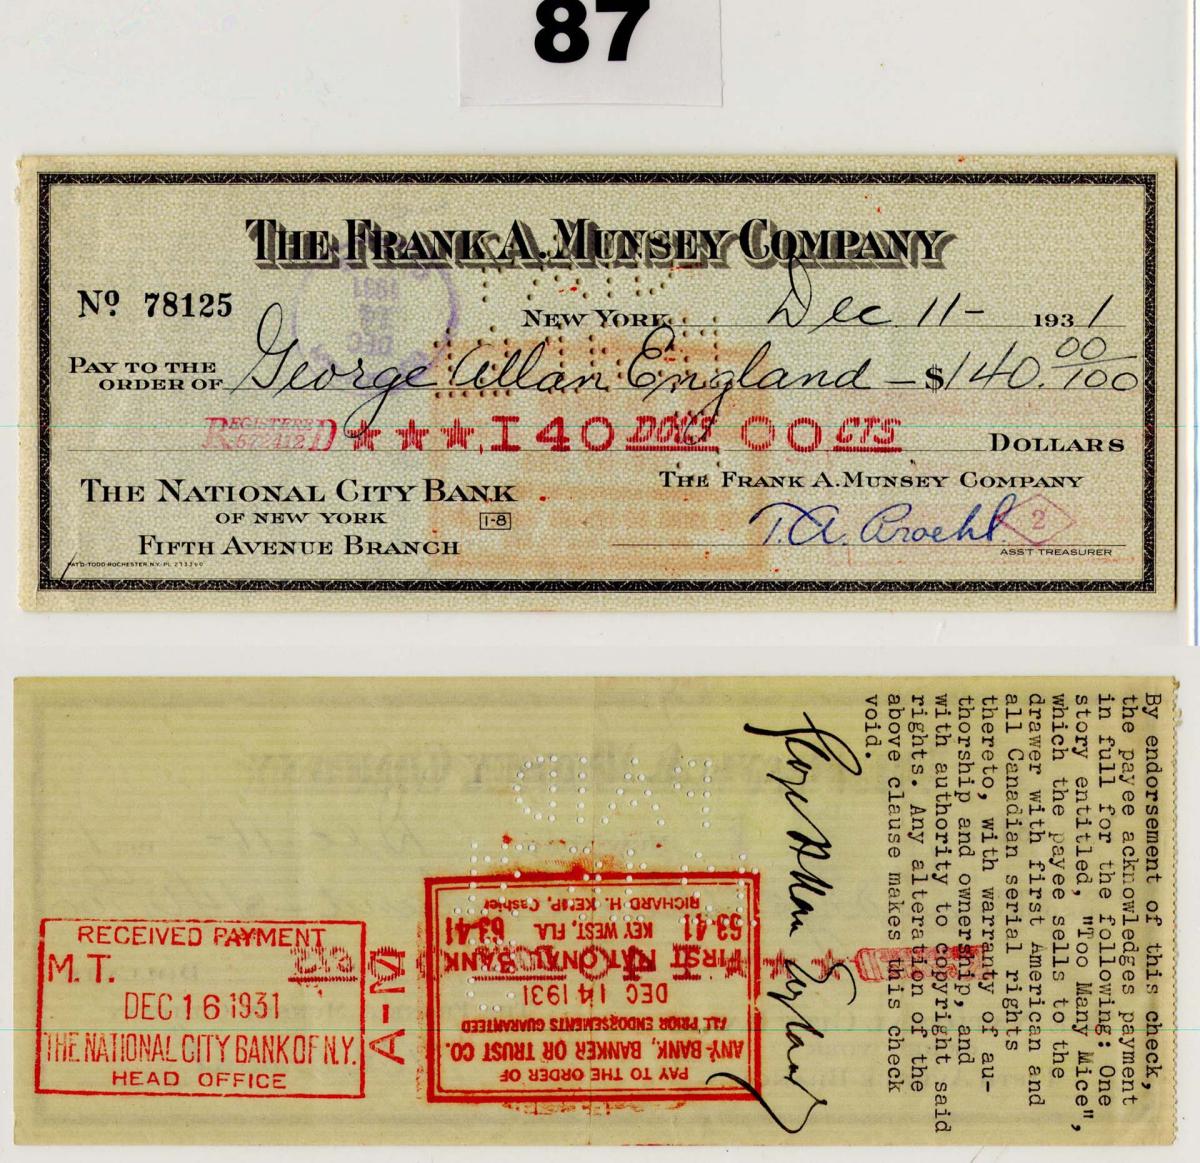 87
THE FRANK A. MUNSEY COMPANY
Nº 78125
NEW YORK Dec 11- 1931
PAY TO THE ORDER OF George Allan England — $140.00/100
REGISTERED 572412 ★★★140 DOL'S 00 CTS DOLLARS
THE NATIONAL CITY BANK
OF NEW YORK 1-8
FIFTH AVENUE BRANCH
THE FRANK A. MUNSEY COMPANY
ASS'T TREASURER
By endorsement of this check,
the payee acknowledges payment
in full for the following: One
story entitled, "Too Many Mice",
which the payee sells to the
drawer with first American and
all Canadian serial rights
thereto, with warranty of au-
thorship and ownership, and
with authority to copyright said
rights. Any alteration of the
above clause makes this check
void.
George Allan England
PAY TO THE ORDER OF
ANY BANK, BANKER OR TRUST CO.
ALL PRIOR ENDORSEMENTS GUARANTEED
DEC 14 1931
FIRST NATIONAL BANK
KEY WEST, FLA.
RICHARD H. KEMP, Cashier
RECEIVED PAYMENT
M.T.
DEC 16 1931
THE NATIONAL CITY BANK OF N.Y.
HEAD OFFICE
A-M